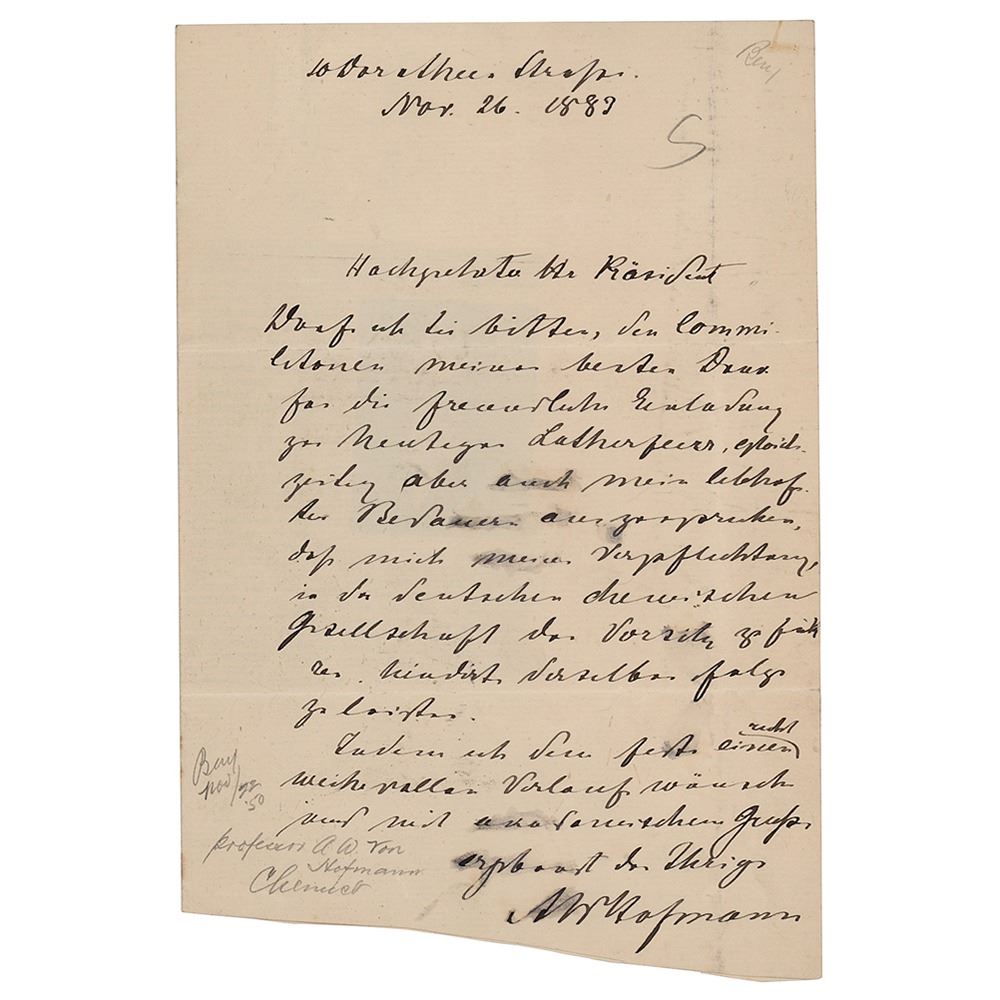 10 Dorotheen Strasse.
Nov. 26. 1883
S
Hochgeehrter Hr Präsident
Darf ich Sie bitten, den Commi-
litonen meinen besten Dank
für die freundliche Einladung
zur heutigen Lutherfeier, gleich-
zeitig aber auch mein lebhaf-
tes Bedauern auszusprechen,
daß mich meine Verpflichtung,
in der deutschen chemischen
Gesellschaft den Vorsitz zu füh-
ren, hindert derselben folge
zu leisten.
Indem ich dem feste einen recht
weihevollen Verlauf wünsche
und mit academischem Gruße
ergebenst der Ihrige
AWHofmann
professor A W. Von
Hofmann
Chemist